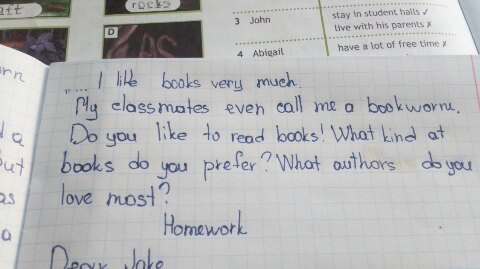 att
rocks
D
3 John
stay in student halls ✓
live with his parents ✗
4 Abigail
have a lot of free time ✗
„ ... I like books very much.
My classmates even call me a bookworm.
Do you like to read books! What kind at
books do you prefer? What authors do you
love most?
Homework
Dear Jake